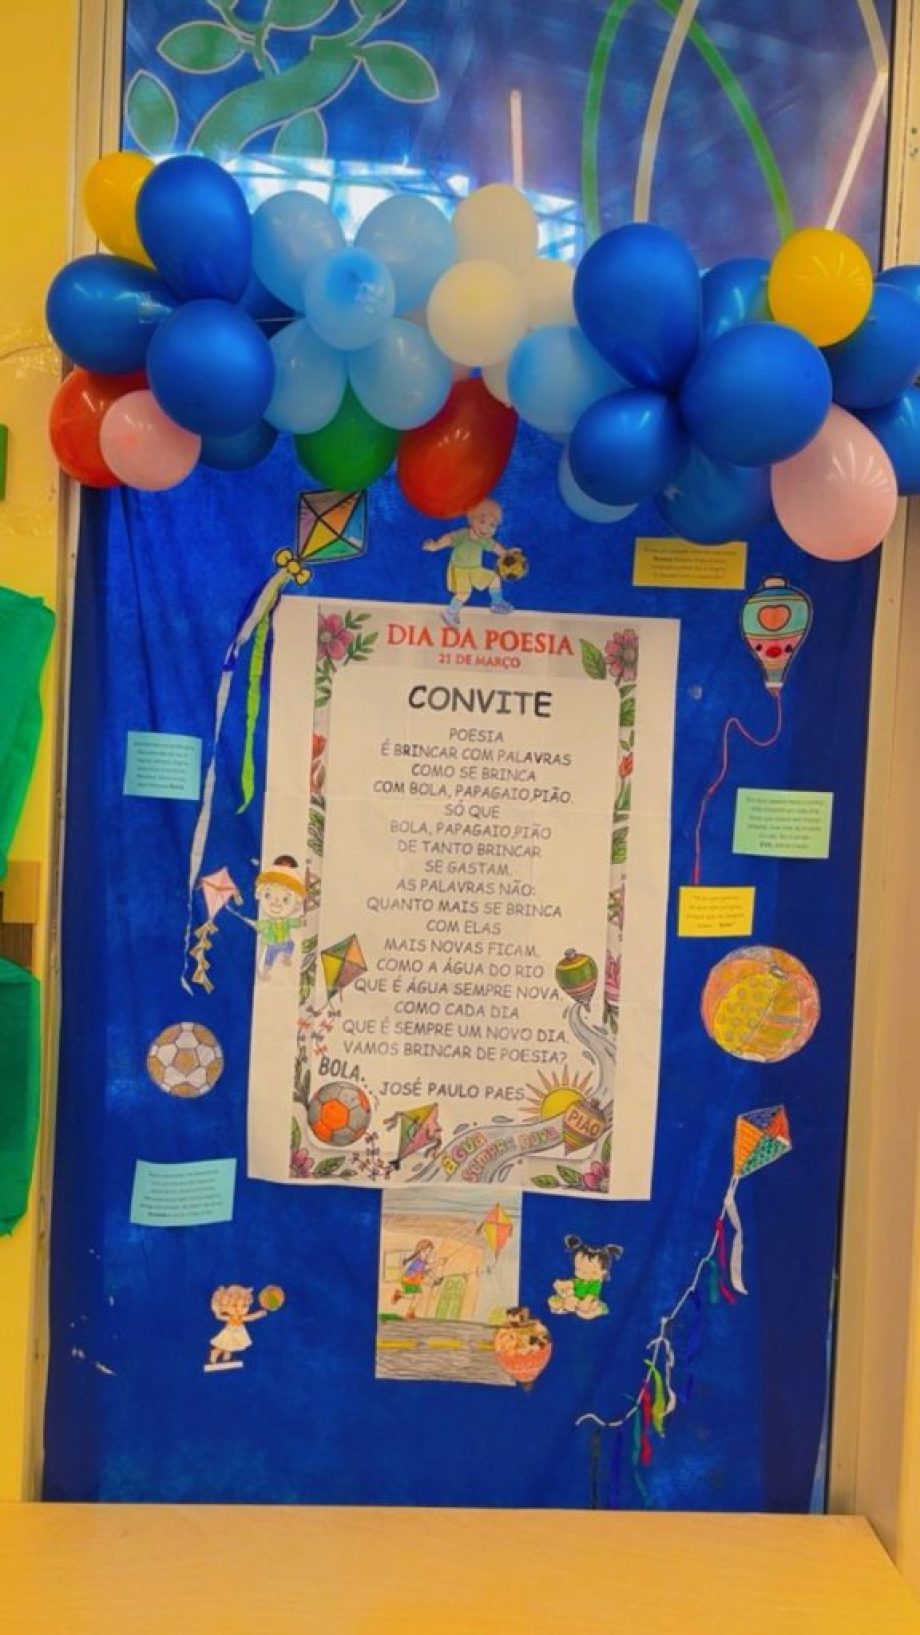 DIA DA POESIA
21 DE MARÇO
CONVITE
POESIA
É BRINCAR COM PALAVRAS
COMO SE BRINCA
COM BOLA, PAPAGAIO,PIÃO.
SÓ QUE
BOLA, PAPAGAIO,PIÃO
DE TANTO BRINCAR
SE GASTAM.
AS PALAVRAS NÃO:
QUANTO MAIS SE BRINCA
COM ELAS
MAIS NOVAS FICAM.
COMO A ÁGUA DO RIO
QUE É ÁGUA SEMPRE NOVA.
COMO CADA DIA
QUE É SEMPRE UM NOVO DIA.
VAMOS BRINCAR DE POESIA?
JOSÉ PAULO PAES
BOLA...
ÁGUA
SEMPRE NOVA
PIÃO